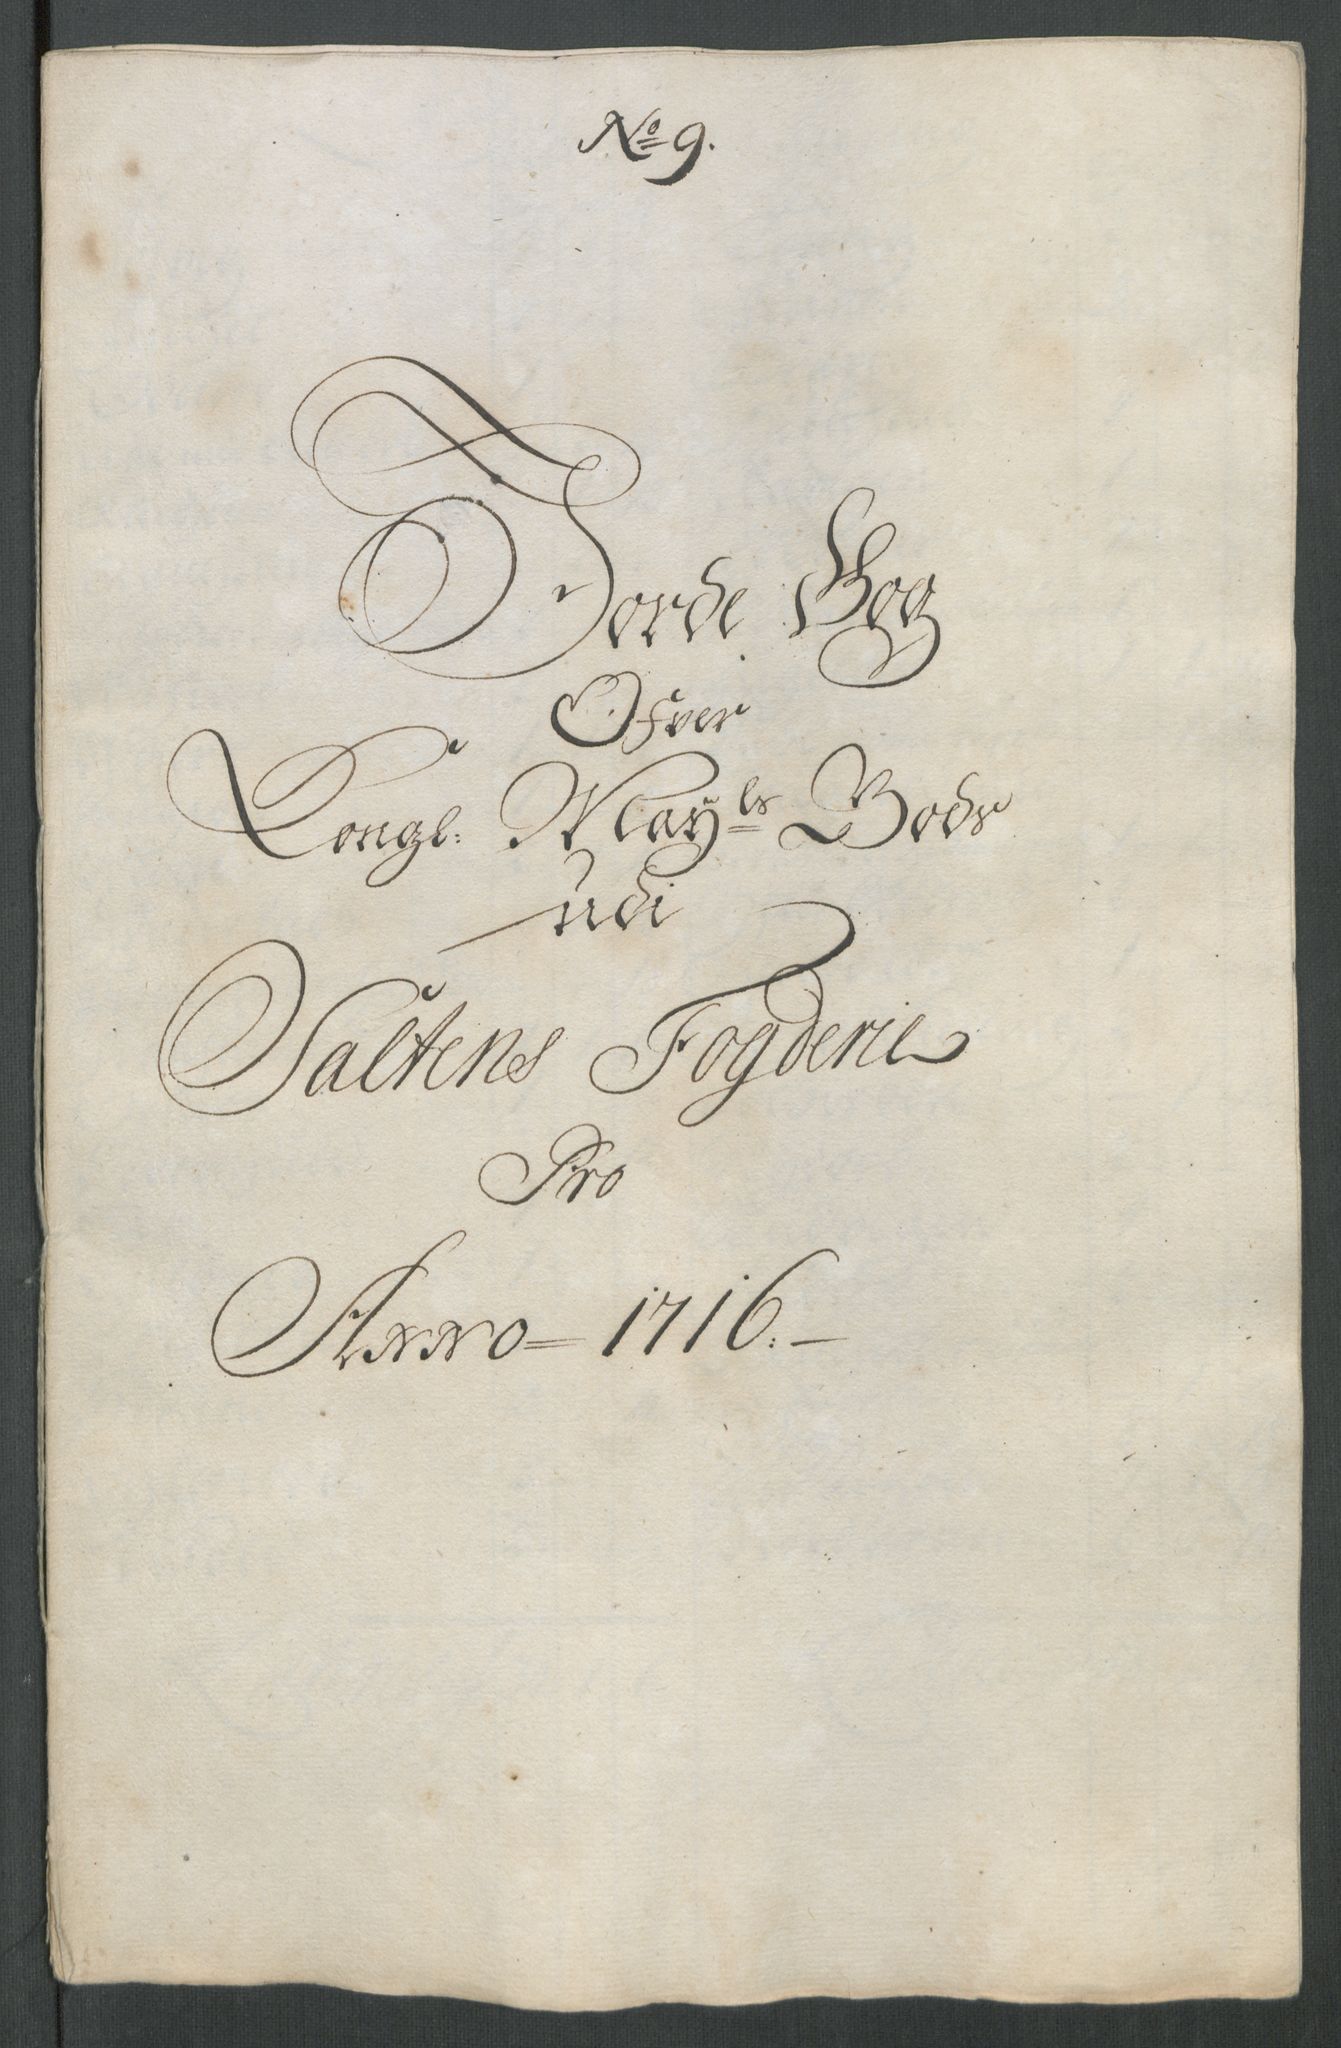 No 9.
Jorde Bog
Ofver
Kongl: May:ts Gods
udi
Saltens Fogderie
Pro
Anno = 1716. –